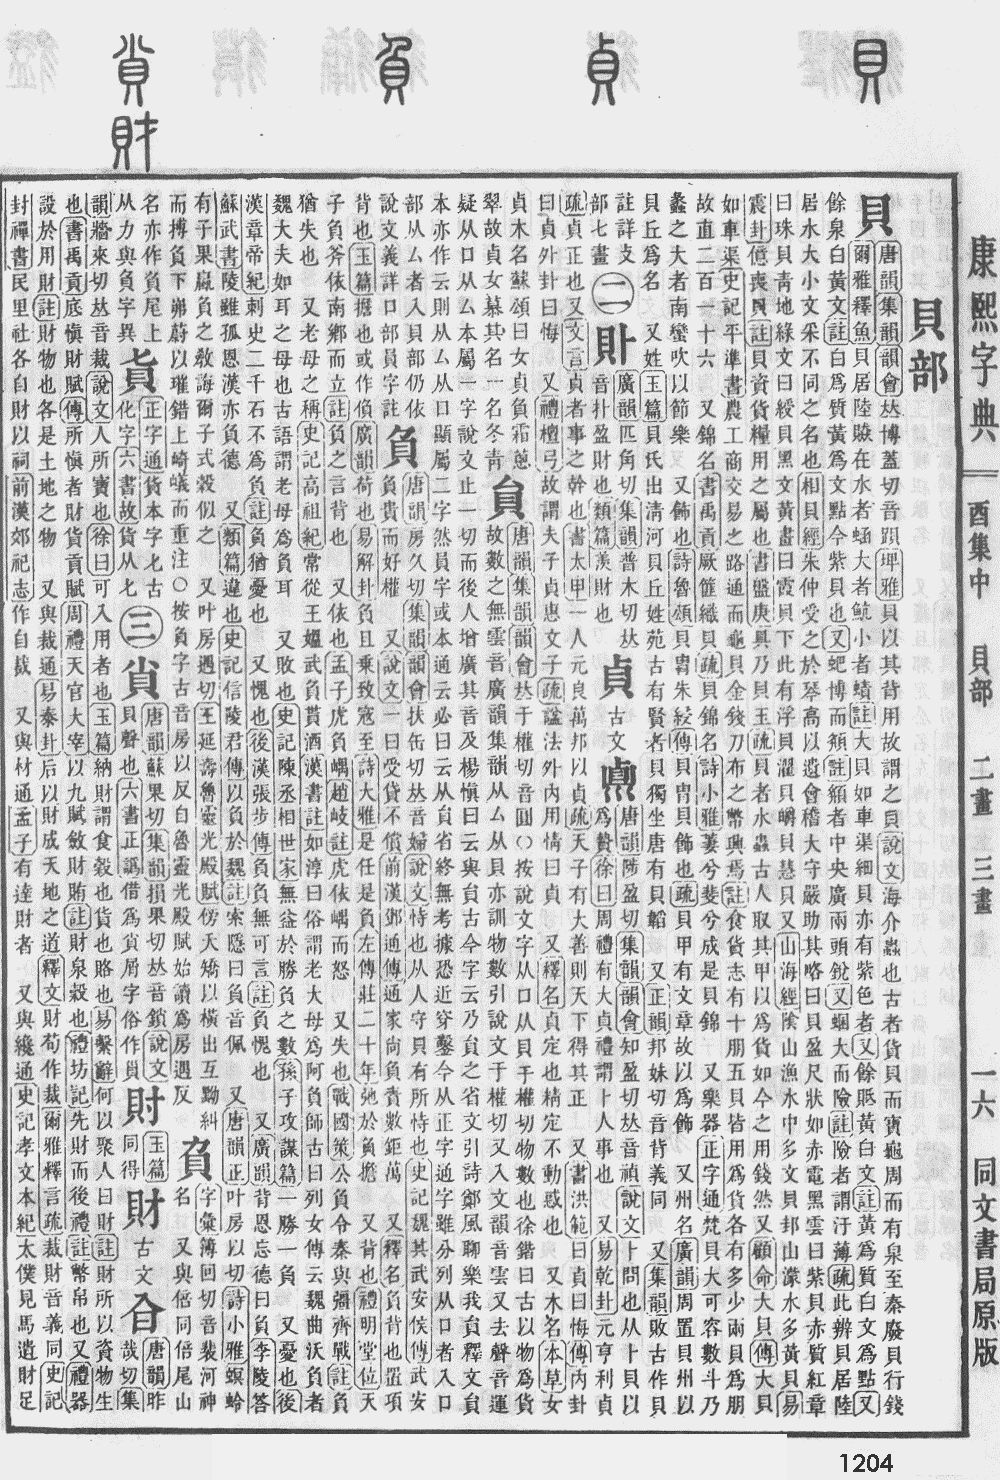 貝 貞 負 財
康熙字典 酉集中 貝部 二畫 三畫 一六 同文書局原版
貝部
貝 唐韻集韻韻會𠀤博蓋切音跟埤雅貝以其背用故謂之貝說文海介蟲也古者貨貝而寶龜周而有泉至秦廢貝行錢
爾雅釋魚貝居陸贆在水者蜬大者魧小者鰿註大貝如車渠細貝亦有紫色者又餘貾黃白文註黃爲質白文爲點又
餘泉白黃文註白爲質黃爲文點今紫貝也又蚆博而頯註頯者中央廣兩頭銳又蜠大而險註險者謂汙薄疏此辨貝居陸
居水大小文采不同之名也相貝經朱仲受之於琴高以遺會稽大守嚴助其略曰貝盈尺狀如赤電黑雲曰紫貝赤質紅章
曰珠貝靑地綠文曰綬貝黑文黃畫曰霞貝下此有浮貝濯貝皭貝慧貝又山海經隂山漁水中多文貝邽山濛水多黃貝易
震卦億喪貝註貝資貨糧用之屬也書盤庚具乃貝玉疏貝者水蟲古人取其甲以爲貨如今之用錢然又顧命大貝傳大貝
如車渠史記平準書農工商交易之路通而龜貝金錢刀布之幣興焉註食貨志有十朋五貝皆用爲貨各有多少兩貝爲朋
故直二百一十六 又錦名書禹貢厥篚織貝疏貝錦名詩小雅萋兮斐兮成是貝錦 又樂器正字通梵貝大可容數斗乃
蠡之大者南蠻吹以節樂 又飾也詩魯頌貝胄朱綅傳貝冑貝飾也疏貝甲有文章故以爲飾 又州名廣韻周置貝州以
貝丘爲名 又姓玉篇貝氏出淸河貝丘姓苑古有賢者貝獨坐唐有貝韜 又正韻邦妹切音背義同 又集韻敗古作貝
註詳攴部七畫
二
𧴤 廣韻匹角切集韻普木切𠀤音扑盈財也類篇羡財也
貞 古文 鼑
唐韻陟盈切集韻韻會知盈切𠀤音禎說文卜問也从卜貝以爲贄徐曰周禮有大貞禮謂卜人事也 又易乾卦元亨利貞
疏貞正也又文言貞者事之幹也書太甲一人元良萬邦以貞疏天子有大善則天下得其正 又書洪範曰貞曰悔傳內卦
曰貞外卦曰悔 又禮檀弓故謂夫子貞惠文子疏諡法外內用情曰貞 又釋名貞定也精定不動惑也 又木名本草女
貞木名蘇頌曰女貞負霜葱翠故貞女慕其名一名冬靑
貟 唐韻集韻韻會𠀤于權切音圓○按說文字从口从貝于權切物數也徐鍇曰古以物爲貨
故數之無雲音廣韻集韻从厶从貝亦訓物數引說文于權切又入文韻音雲又去聲音運
疑从口从厶本屬一字說文止一切而後人增廣其音及楊愼曰云與貟古今字云乃貟之省文引詩鄭風聊樂我貟釋文貟
本亦作云則从厶从口顯屬二字然員字或本通云必曰云从貟省終無考據恐近穿鑿今从正字通字雖分列从口者入口
部从厶者入貝部仍依說文義詳口部員字註
負 唐韻房久切集韻韻會扶缶切𠀤音婦說文恃也从人守貝有所恃也史記魏其武安侯傳武安
負貴而好權 又說文一曰受貸不償前漢鄧通傳通家尙負責數鉅萬 又釋名負背也置項
背也玉篇擔也或作偩廣韻荷也易解卦負且乘致寇至詩大雅是任是負左傳莊二十年弛於負擔 又背也禮明堂位天
子負斧依南鄕而立註負之言背也 又依也孟子虎負嵎趙岐註虎依嵎而怒 又失也戰國策公負令秦與彊齊戰註負
猶失也 又老母之稱史記高祖紀常從王媼武負貰酒漢書註如淳曰俗謂老大母爲阿負師古曰列女傳云魏曲沃負者
魏大夫如耳之母也古語謂老母爲負耳 又敗也史記陳丞相世家無益於勝負之數孫子攻謀篇一勝一負 又憂也後
漢章帝紀刺史二千石不爲負註負猶憂也 又愧也後漢張步傳負負無可言註負愧也 又廣韻背恩忘德曰負李陵答
蘇武書陵雖孤恩漢亦負德 又類篇違也史記信陵君傳以負於魏註索隱曰負音佩 又唐韻正叶房以切詩小雅螟蛉
有子果蠃負之敎誨爾子式穀似之 又叶房遇切王延壽魯靈光殿賦傍夭矯以橫出互黝糾
而搏負下岪蔚以璀錯上崎嶬而重注○按負字古音房以反自魯靈光殿賦始讀爲房遇反
負 字彙簿回切音裴河神名 又與倍同倍尾山
名亦作負尾上从力與負字異
𧴦 正字通貨本字北古化字六書故貨从七
三
𧴪 唐韻蘇果切集韻損果切𠀤音鎖說文貝聲也六書正譌借爲貟屑字俗作貟
財 玉篇同得
財 古文 㒲
唐韻昨哉切集
韻牆來切𠀤音裁說文人所寶也徐曰可入用者也玉篇納財謂食穀也貨也賂也易繫辭何以聚人曰財註財所以資物生
也書禹貢底愼財賦傳所愼者財貨貢賦周禮天官大宰以九賦斂財賄註財泉穀也禮坊記先財而後禮註幣帛也又禮器
設於用財註財物也各是土地之物 又與裁通易泰卦后以財成天地之道釋文財荀作裁爾雅釋言疏裁財音義同史記
封禪書民里社各自財以祠前漢郊祀志作自裁 又與材通孟子有達財者 又與纔通史記孝文本紀太僕見馬遺財足
1204